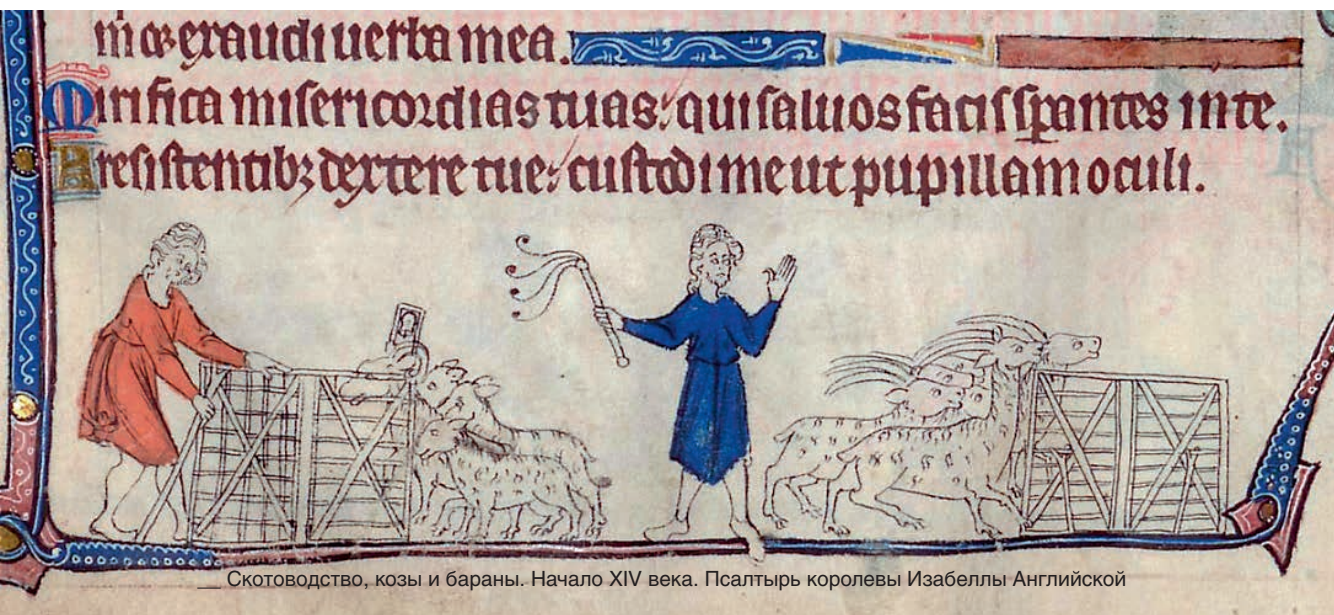 exaudi uerba mea.
Mirifica misericordias tuas: qui saluos facis sp̄antes in te.
A resistentibꝫ dextere tue: custodi me ut pupillam oculi.
Скотоводство, козы и бараны. Начало XIV века. Псалтырь королевы Изабеллы Английской